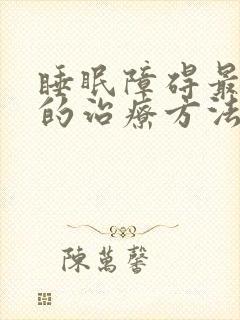 睡眠障碍最
的治療方法
陳萬馨